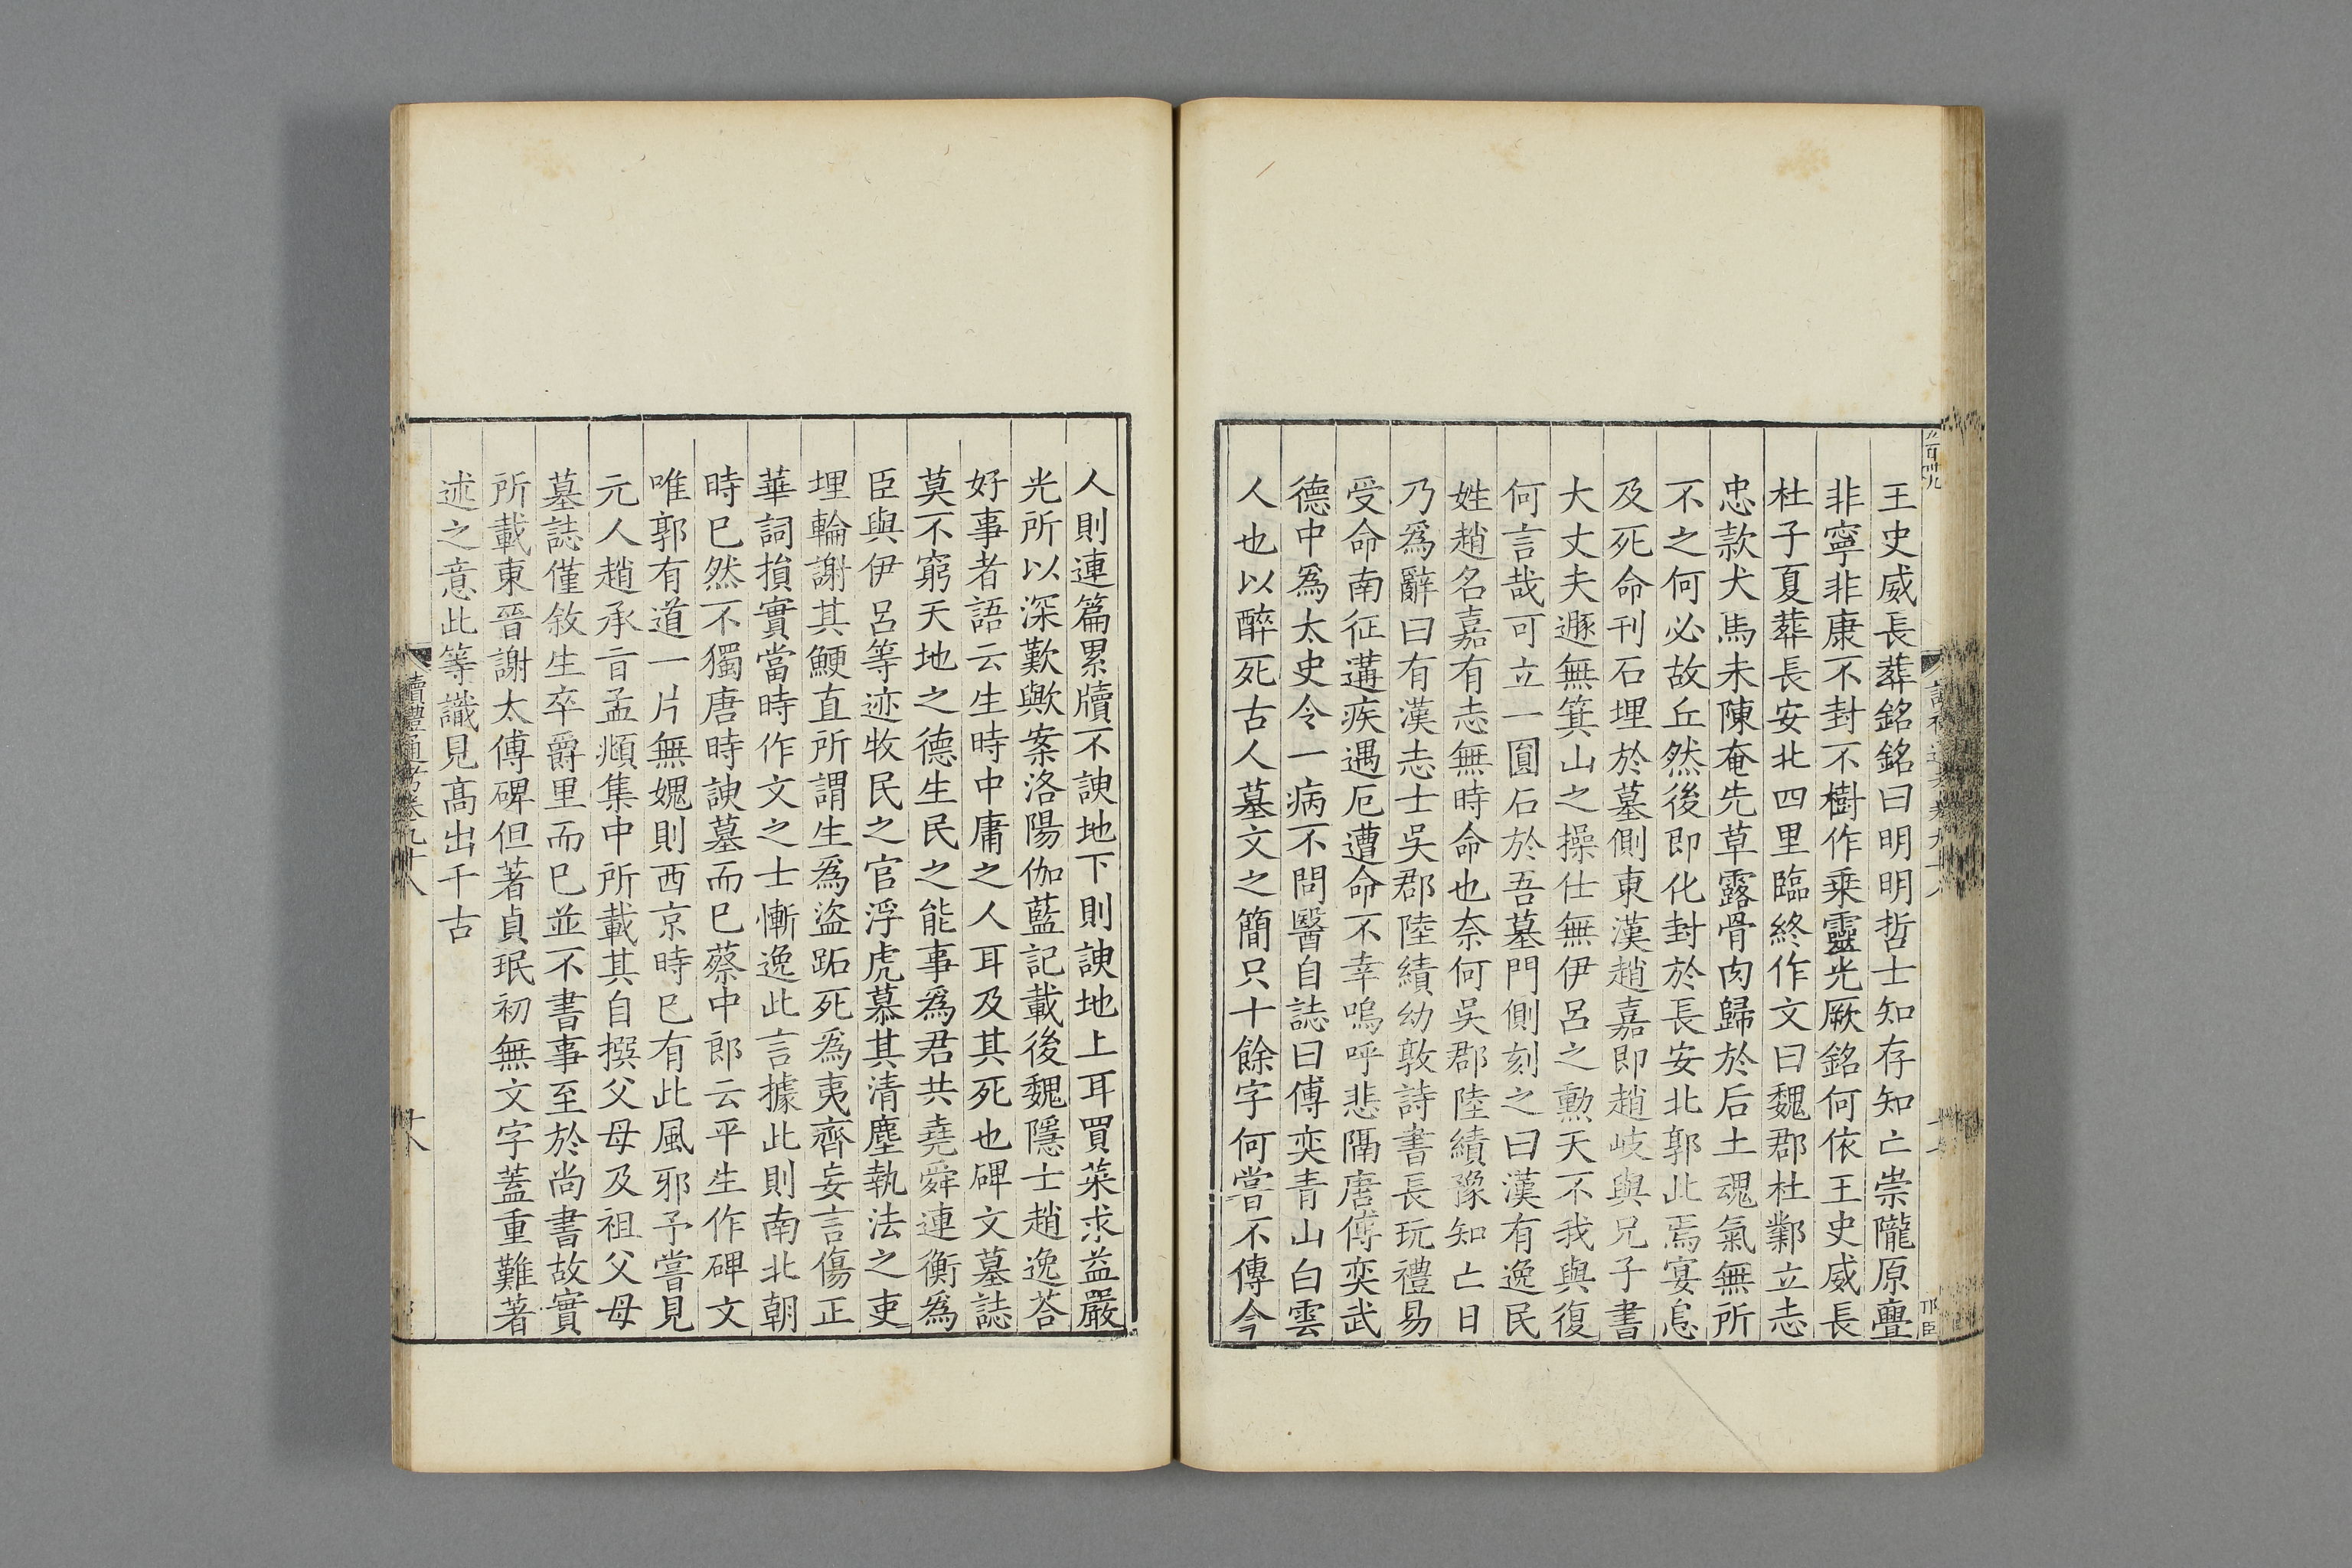 王史威長葬銘銘曰明明哲士知存知亡崇隴原亹
非寧非康不封不樹作乘靈光厥銘何依王史威長
杜子夏葬長安北四里臨終作文曰魏郡杜鄴立志
忠款犬馬未陳奄先草露骨肉歸於后土魂氣無所
不之何必故丘然後即化封於長安北郭此焉宴息
及死命刊石埋於墓側東漢趙嘉即趙岐與兄子書
大丈夫遯無箕山之操仕無伊呂之勲天不我與復
何言哉可立一圓石於吾墓門側刻之曰漢有逸民
姓趙名嘉有志無時命也奈何吳郡陸績豫知亡日
乃爲辭曰有漢志士吳郡陸績幼敦詩書長玩禮易
受命南征遘疾遇厄遭命不幸嗚呼悲隔唐傅奕武
德中爲太史令一病不問醫自誌曰傅奕青山白雲
人也以醉死古人墓文之簡只十餘字何嘗不傳今
人則連篇累牘不諛地下則諛地上耳買菜求益嚴
光所以深歎歟案洛陽伽藍記載後魏隱士趙逸荅
好事者語云生時中庸之人耳及其死也碑文墓誌
莫不窮天地之德生民之能事爲君共堯舜連衡爲
臣與伊呂等迹牧民之官浮虎慕其清塵執法之吏
埋輪謝其鯁直所謂生爲盜跖死爲夷齊妄言傷正
華詞損實當時作文之士慚逸此言據此則南北朝
時已然不獨唐時諛墓而已蔡中郎云平生作碑文
唯郭有道一片無媿則西京時已有此風邪予嘗見
元人趙承旨孟頫集中所載其自撰父母及祖父母
墓誌僅敘生卒爵里而已並不書事至於尚書故實
所載東晉謝太傅碑但著貞珉初無文字蓋重難著
述之意此等識見高出千古
讀禮通考卷九十八
十八